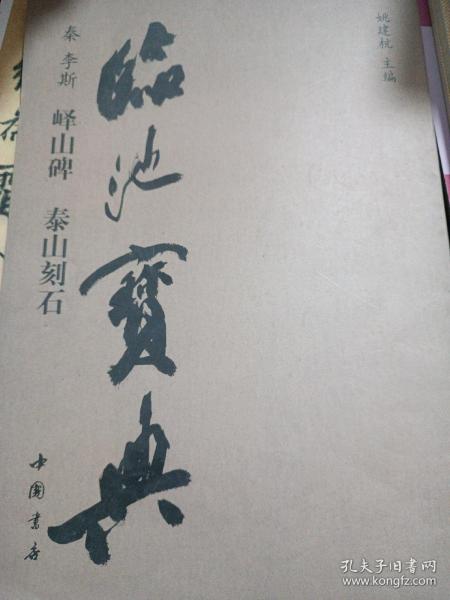 姚建杭 主编
臨池寶典
秦 李斯 峄山碑 泰山刻石
中國書店
孔夫子旧书网
www.kongfz.com